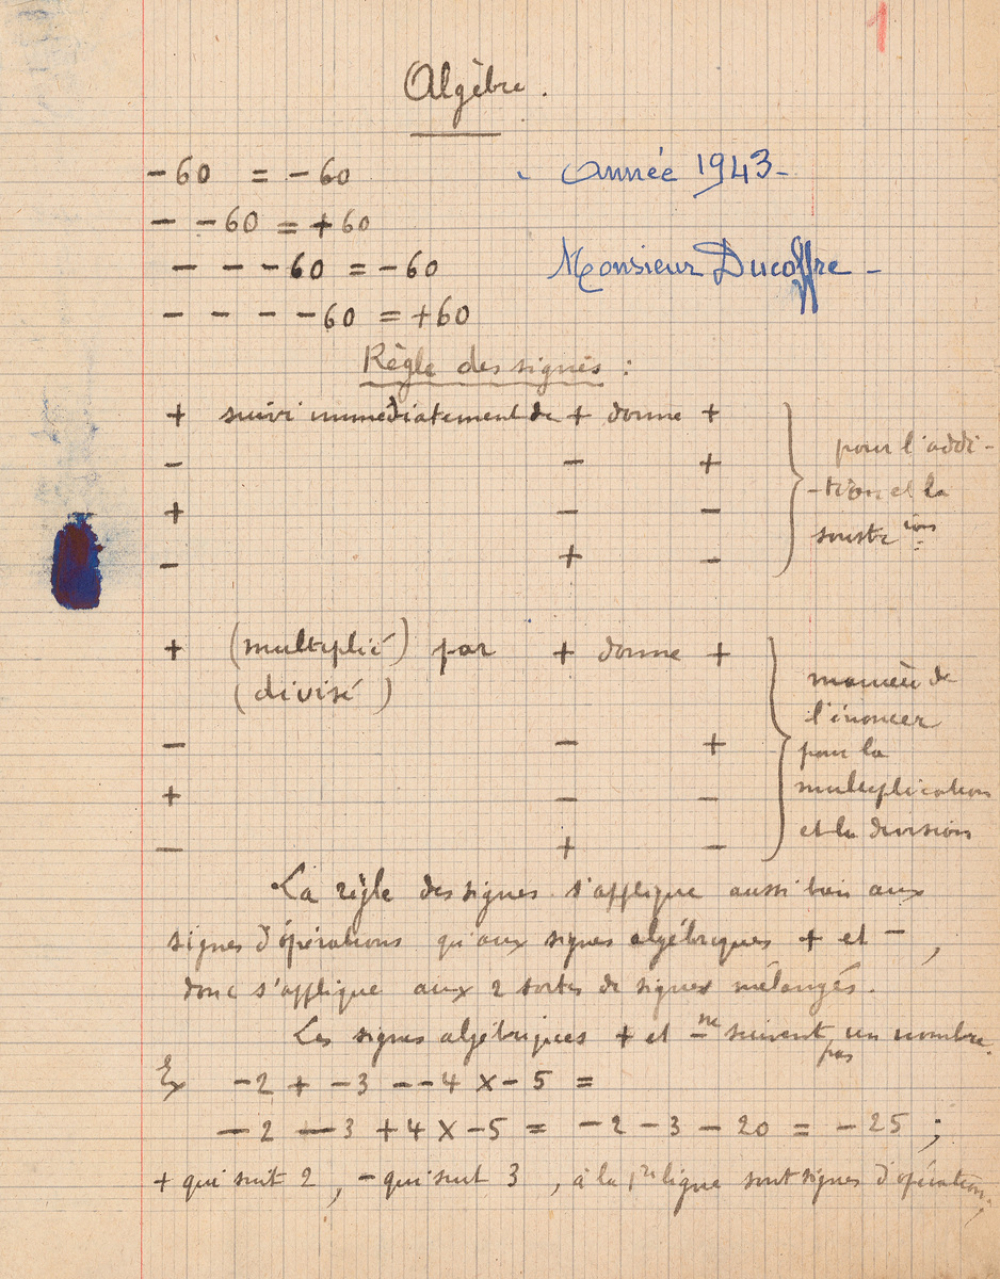 1
Algèbre.
-60 = -60
Année 1943-
- -60 = +60
- - -60 = -60
Monsieur Ducoffre -
- - - -60 = +60
Règle des signes :
+ suivi immédiatement de + donne +
- - +
+ - -
- + -
pour l'addi-
-tion et la
soustr ion
+ (multiplié) par + donne +
(divisé)
- - +
+ - -
- + -
manière de
l'énoncer
pour la
multiplication
et la division
La règle des signes s'applique aussi bien aux
signes d'opérations qu'aux signes algébriques + et - ,
donc s'applique aux 2 sortes de signes mélangés.
Les signes algébriques + et - ne suivent pas un nombre.
Ex -2 + -3 - -4 x - 5 =
-2 -3 +4 x -5 = -2 -3 - 20 = -25 ;
+ qui suit 2 , - qui suit 3 , à la 1re ligne sont signes d'opération;